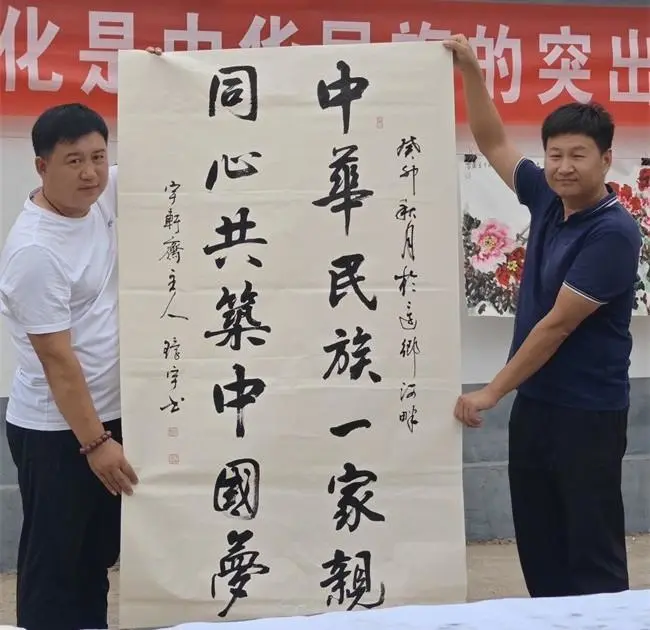 化是中华民族的突出
癸卯秋月於鄉河畔
中華民族一家親
同心共築中國夢
宇軒齋主人 宇书